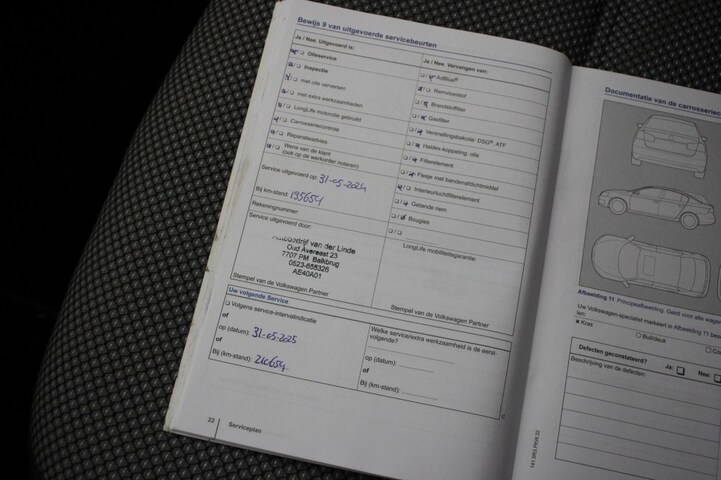 Bewijs 9 van uitgevoerde servicebeurten
Ja / Nee Uitgevoerd is:
Olieservice
Inspectie
met olie verversen
met extra werkzaamheden
LongLife motorolie gebruikt
Carrosseriecontrole
Reparatieadvies
Wens van de klant
(ook op de werkorder noteren)
Service uitgevoerd op: 31-05-2024
Bij km-stand: 195654
Rekeningnummer:
Service uitgevoerd door:
van der Linde
Oud Avereest 23
7707 PM Balkbrug
0523-656326
AE40A01
Stempel van de Volkswagen Partner
Ja / Nee Vervangen van:
AdBlue®
Remvloeistof
Brandstoffilter
Gasfilter
Versnellingsbakolie: DSG®, ATF
Haldex-koppeling: olie
Filterelement
Flesje met bandenafdichtmiddel
Interieurluchtfilterelement
Getande riem
Bougies
LongLife mobiliteitsgarantie:
Stempel van de Volkswagen Partner
Uw volgende Service
Volgens service-intervalindicatie
of
op (datum): 31-05-2025
of
Bij (km-stand): 210654
Welke service/extra werkzaamheid is de eerst-
volgende?
op (datum):
of
Bij (km-stand):
22 Serviceplan
Documentatie van de carrosserie
Afbeelding 11 Principeafbeelding: Geldt voor alle
Uw Volkswagen-specialist markeert in Afbeelding 11
Kras
Buil/deuk
Defecten geconstateerd? Ja: Nee:
Beschrijving van de defecten: